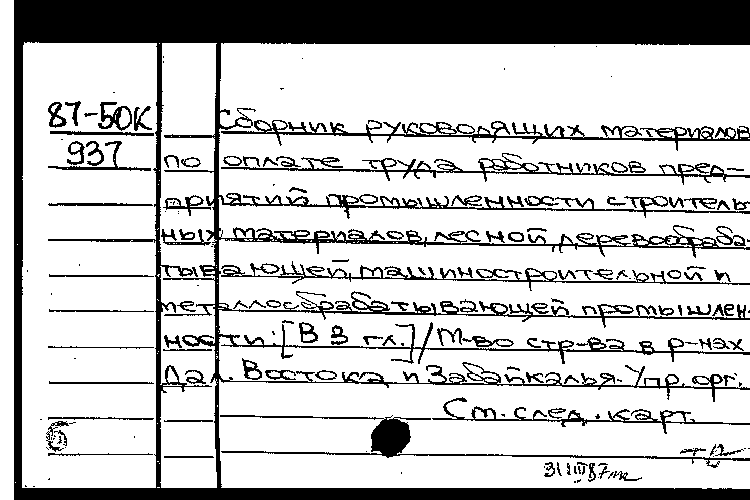 87-50К
937
Сборник руководящих материалов
по оплате труда работников пред-
приятий промышленности строитель-
ных материалов, лесной, деревообраба-
тывающей, машиностроительной и
металлообрабатывающей промышлен-
ности: [В 3 гл.] / М-во стр-ва в р-нах
Дал. Востока и Забайкалья. Упр. орг.
См. след. карт.
31 III 87